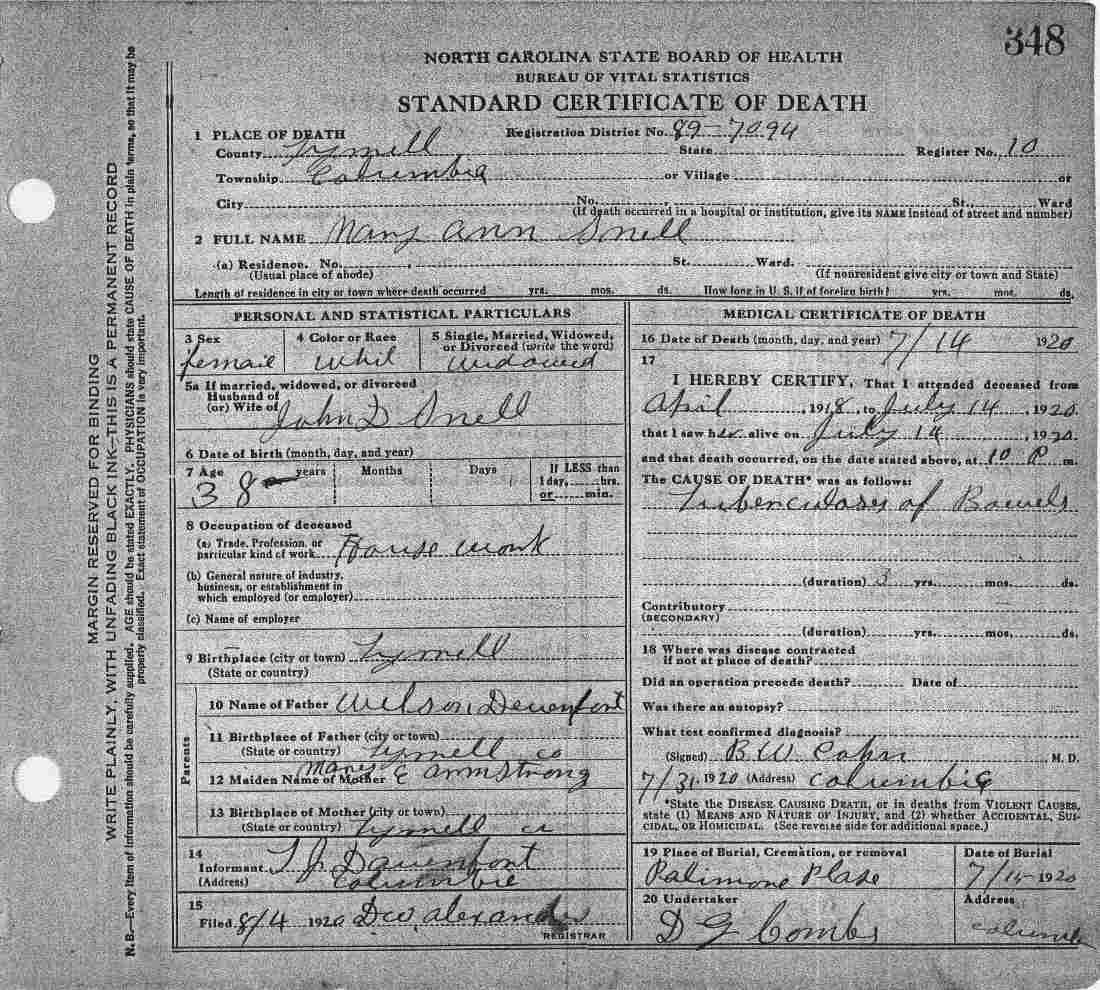 348
NORTH CAROLINA STATE BOARD OF HEALTH
BUREAU OF VITAL STATISTICS
STANDARD CERTIFICATE OF DEATH
1 PLACE OF DEATH Registration District No. 89-7094
County Tyrrell State Register No. 10
Township Columbia or Village or
City No. , St., Ward
(If death occurred in a hospital or institution, give its NAME instead of street and number)
2 FULL NAME Mary Ann Snell
(a) Residence. No. , St. Ward.
(Usual place of abode) (If nonresident give city or town and State)
Length of residence in city or town where death occurred yrs. mos. ds. How long in U. S. if of foreign birth? yrs. mos. ds.
PERSONAL AND STATISTICAL PARTICULARS
3 Sex 4 Color or Race 5 Single, Married, Widowed, or Divorced (write the word)
femail Whit Widowed
5a If married, widowed, or divorced
Husband of
(or) Wife of John D Snell
6 Date of birth (month, day, and year)
7 Age years Months Days If LESS than
1 day, hrs.
or min.
38
8 Occupation of deceased
(a) Trade, Profession, or
particular kind of work House work
(b) General nature of industry,
business, or establishment in
which employed (or employer)
(c) Name of employer
9 Birthplace (city or town) Tyrrell
(State or country)
Parents
10 Name of Father Wilson Davenport
11 Birthplace of Father (city or town)
(State or country) Tyrrell co
12 Maiden Name of Mother Mary E Armstrong
13 Birthplace of Mother (city or town)
(State or country) Tyrrell co
14
Informant T J Davenport
(Address) Columbia
15
Filed 8/4 1920 DW Alexander
REGISTRAR
MEDICAL CERTIFICATE OF DEATH
16 Date of Death (month, day, and year) 7/14 1920
17
I HEREBY CERTIFY, That I attended deceased from
April , 1918, to July 14 , 1920.
that I saw her alive on July 14 , 1920.
and that death occurred, on the date stated above, at 10 P m.
The CAUSE OF DEATH* was as follows:
Tuberculoses of Bowels
(duration) 3 yrs. mos. ds.
Contributory
(SECONDARY)
(duration) yrs. mos. ds.
18 Where was disease contracted
if not at place of death?
Did an operation precede death? Date of
Was there an autopsy?
What test confirmed diagnosis?
(Signed) B W , M. D.
7/31, 1920 (Address) Columbia
*State the DISEASE CAUSING DEATH, or in deaths from VIOLENT CAUSES,
state (1) MEANS AND NATURE OF INJURY, and (2) whether ACCIDENTAL, SUI-
CIDAL, or HOMICIDAL. (See reverse side for additional space.)
19 Place of Burial, Cremation, or removal Date of Burial
Plase 7/15 1920
20 Undertaker Address
D G Combs Columbia
MARGIN RESERVED FOR BINDING
WRITE PLAINLY, WITH UNFADING BLACK INK—THIS IS A PERMANENT RECORD
N. B.—Every item of information should be carefully supplied. AGE should be stated EXACTLY. PHYSICIANS should state CAUSE OF DEATH in plain terms, so that it may be
properly classified. Exact statement of OCCUPATION is very important.